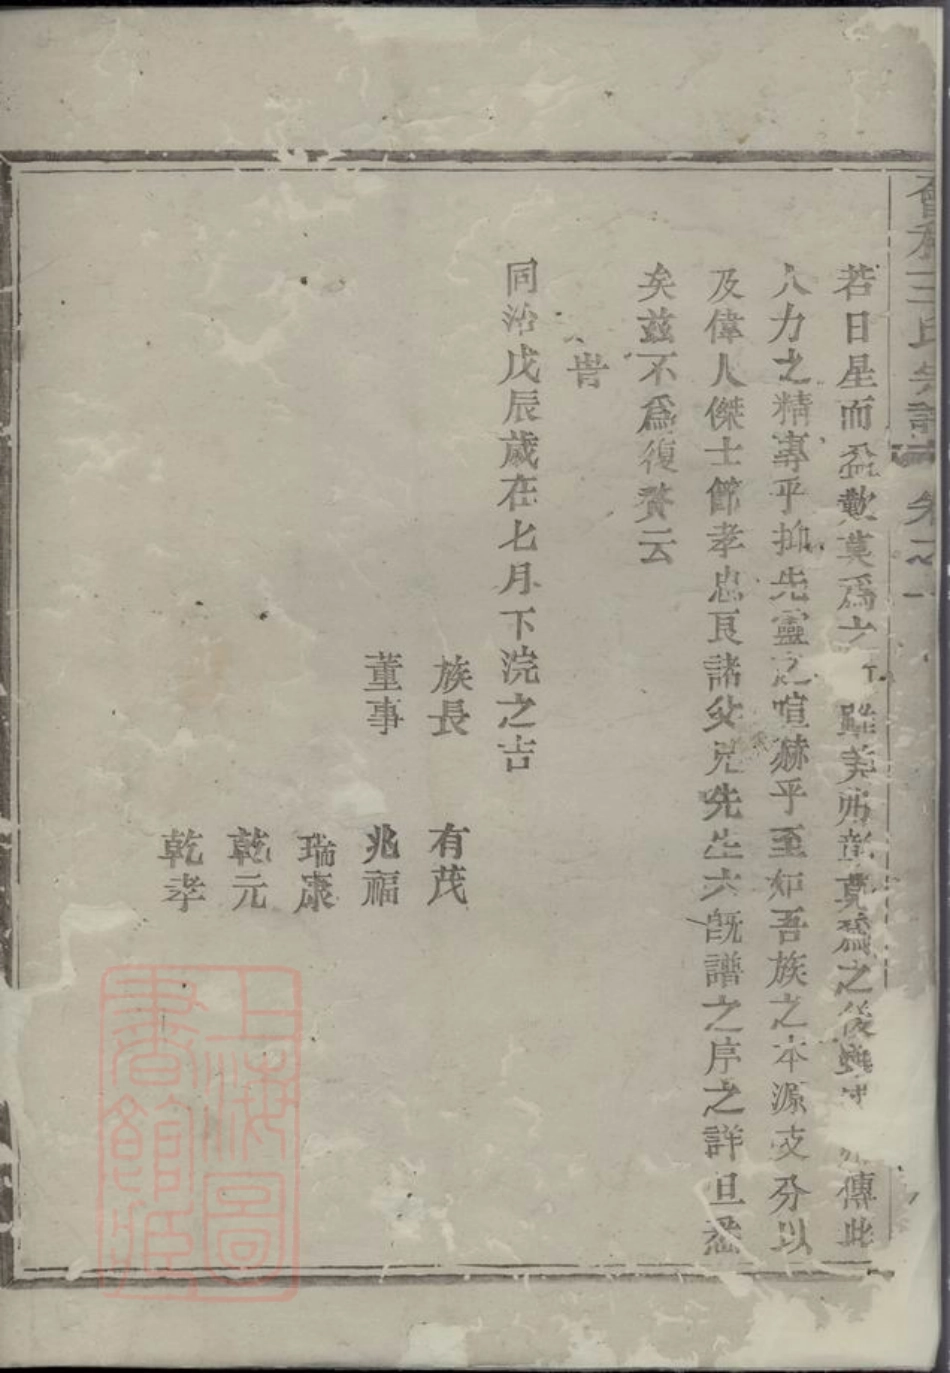 王氏宗譜 卷之一
若日星而盈歉莫爲之 雖美弗彰莫爲之後雖 傳此
人力之精專乎抑先靈之喧赫乎至如吾族之本源支分以
及偉人傑士節孝忠良諸父兄先生大旣譜之序之詳且悉
矣茲不爲復贅云
旹
同治戊辰歲在七月下浣之吉
族長 有茂
董事 兆福
瑞康
乾元
乾孝
上海圖
書館藏